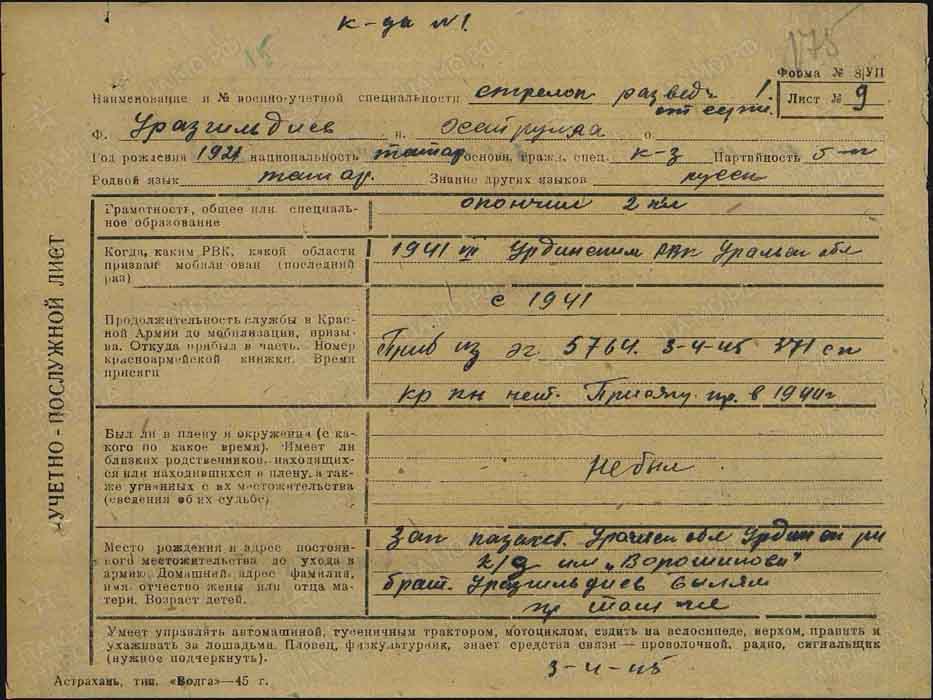 к-да №1.
15
175
Форма № 8/УП
Лист № 9
Наименование и № военно-учетной специальности стрелок развед.
от серж.
Ф. Уразгильдиев и. о.
Год рождения 1921 национальность татар основн. гражд. спец. к-з Партийность б-п
Родной язык татар. Знание других языков русск
Грамотность, общее или специаль-
ное образование
окончил 2 кл
Когда, каким РВК, какой области
призван мобилизован (последний
раз)
1941 Урдинским РВК Уральск обл
Продолжительность службы в Крас-
ной Армии до мобилизации, призы-
ва. Откуда прибыл в часть. Номер
красноармейской книжки. Время
присяги
с 1941
Приб из эг 5764. 3-4-45 371 сп
кр кн нет. Присягу пр. в 1944г
Был ли в плену и окружении (с ка-
кого по какое время). Имеет ли
близких родственников, находящих-
ся или находившихся в плену, а так-
же угнанных с их местожительства
(сведения об их судьбе)
не был
Место рождения и адрес постоян-
ного местожительства до ухода в
армию. Домашний адрес фамилия,
имя отчество жены или отца ма-
тери. Возраст детей.
Зап казахст. Уральск обл Урдинск рн
к/з им „Ворошилова"
брат. Уразгильдиев
пр там же
Умеет управлять автомашиной, гусеничным трактором, мотоциклом, ездить на велосипеде, верхом, править и
ухаживать за лошадьми. Пловец, физкультурник, знает средства связи — проволочной, радио, сигнальщик
(нужное подчеркнуть).
3-4-45
Астрахань, тип. «Волга»—45 г.
УЧЕТНО-ПОСЛУЖНОЙ ЛИСТ